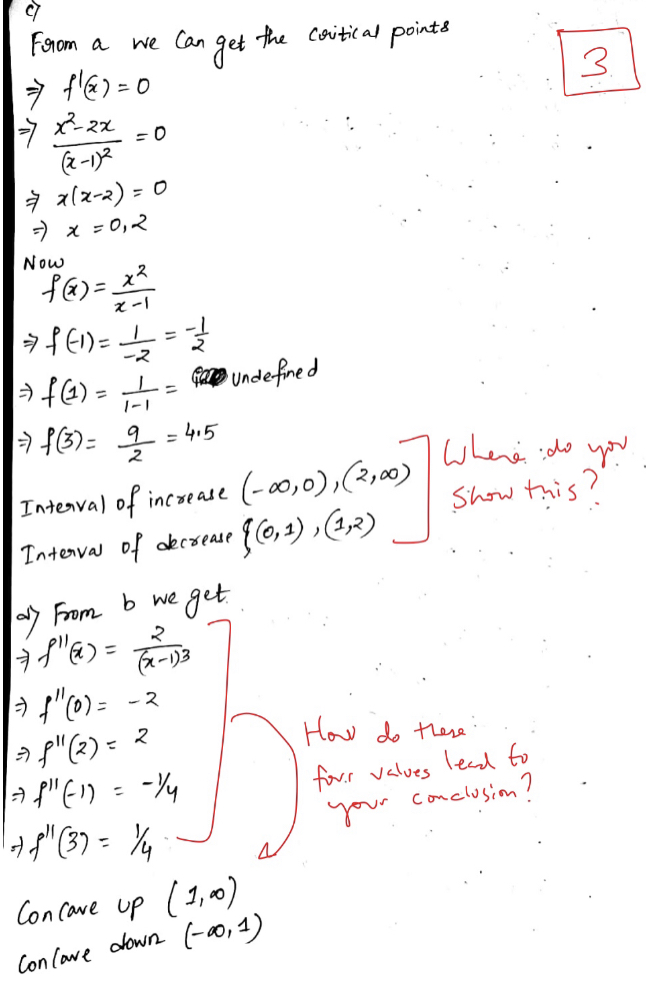 c)
From a we can get the critical points
3
⇒ f'(x) = 0
⇒ x²-2x / (x-1)² = 0
⇒ x(x-2) = 0
⇒ x = 0,2
Now
f(x) = x² / x-1
⇒ f(-1) = 1/-2 = -1/2
⇒ f(1) = 1/1-1 = undefined
⇒ f(3) = 9/2 = 4.5
Interval of increase (-∞,0),(2,∞)
Interval of decrease {(0,1),(1,2)
Where do you
show this?
d) From b we get
⇒ f''(x) = 2/(x-1)3
⇒ f''(0) = -2
⇒ f''(2) = 2
⇒ f''(-1) = -1/4
⇒ f''(3) = 1/4
How do these
four values lead to
your conclusion?
Concave up (1,∞)
Concave down (-∞,1)